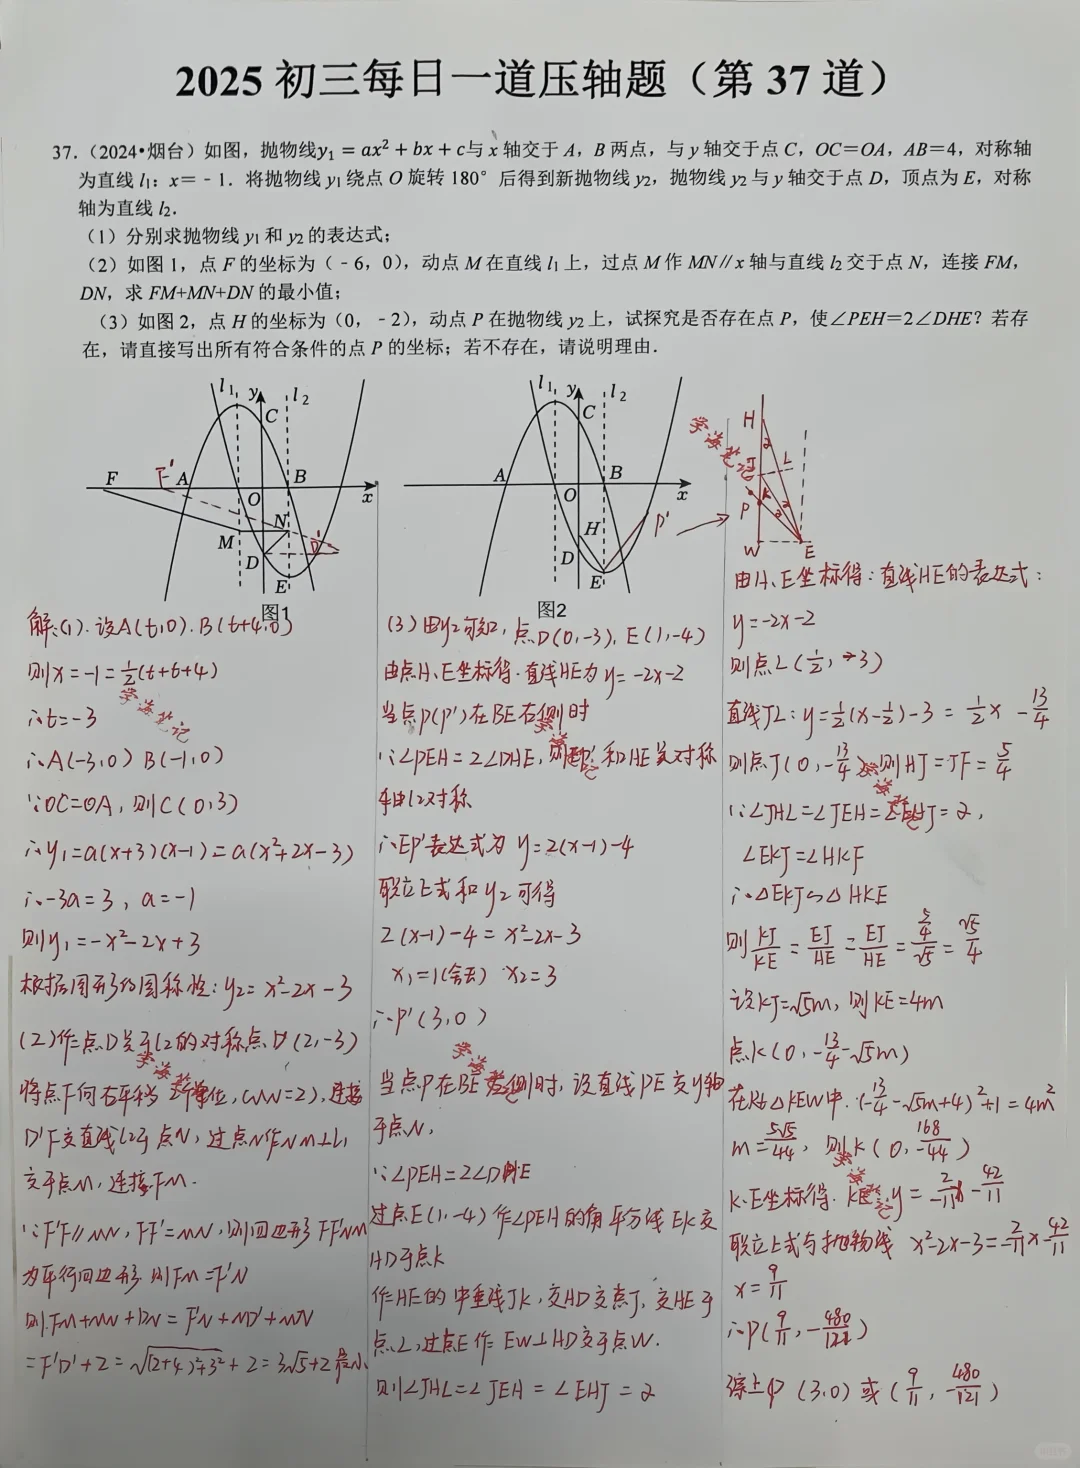 2025 初三每日一道压轴题（第 37 道）
37.（2024•烟台）如图，抛物线y₁ = ax² + bx + c与 x 轴交于 A，B 两点，与 y 轴交于点 C，OC＝OA，AB＝4，对称轴
为直线 l₁：x＝﹣1．将抛物线 y₁ 绕点 O 旋转 180° 后得到新抛物线 y₂，抛物线 y₂ 与 y 轴交于点 D，顶点为 E，对称
轴为直线 l₂．
（1）分别求抛物线 y₁ 和 y₂ 的表达式；
（2）如图 1，点 F 的坐标为（﹣6，0），动点 M 在直线 l₁ 上，过点 M 作 MN∥x 轴与直线 l₂ 交于点 N，连接 FM，
DN，求 FM+MN+DN 的最小值；
（3）如图 2，点 H 的坐标为（0，﹣2），动点 P 在抛物线 y₂ 上，试探究是否存在点 P，使∠PEH＝2∠DHE？若存
在，请直接写出所有符合条件的点 P 的坐标；若不存在，请说明理由．
l₁ y l₂
C
F F' A O B x
M N
D D'
E
图1
l₁ y l₂
C
A O B x
H P'
D
E
图2
学海笔记
H
2
J L
K 2
P 2
W E
解:(1).设A(t,0).B(t+4,0)
则x=-1=½(t+t+4)
∴t=-3
学海笔记
∴A(-3,0) B(-1,0)
∵OC=OA,则C(0,3)
∴y₁=a(x+3)(x-1)=a(x²+2x-3)
∴-3a=3, a=-1
则y₁=-x²-2x+3
根据图形的图称性:y₂=x²-2x-3
(2)作点D关于l2的对称点D'(2,-3)
学海笔记
将点F向右平移2个单位,(MN=2),连接
D'F'交直线l2于点N,过点N作NM⊥l₁
交于点M,连接FM.
∵F'F∥MN,FF'=MN,则四边形FF'NM
为平行四边形.则FM=F'N
则FM+MN+DN=F'N+ND'+MN
=F'D'+2=√((2+4)²+3²)+2=3√5+2最小
(3)由y₂可知,点D(0,-3),E(1,-4)
由点H、E坐标得.直线HE为y=-2x-2
当点P(P')在BE右侧时
∵∠PEH=2∠DHE,则EP'和HE关对称
轴l2对称
学海笔记
∴EP'表达式为 y=2(x-1)-4
联立上式和y₂可得
2(x-1)-4=x²-2x-3
x₁=1(舍去) x₂=3
∴P'(3,0)
学海笔记
当点P在BE左侧时,设直线PE交y轴
于点N,
∵∠PEH=2∠DHE
过点E(1,-4)作∠PEH的角平分线EK交
HD于点K
作HE的中垂线JK,交HD交点J,交HE于
点L,过点E作EW⊥HD交于点W.
则∠JHL=∠JEH=∠EHJ=2
由H、E坐标得:直线HE的表达式:
y=-2x-2
则点L(½,-3)
直线JL:y=½(x-½)-3=½x-13/4
则点J(0,-13/4) 则HJ=JF=5/4
学海笔记
∵∠JHL=∠JEH=∠EHJ=2,
∠EKJ=∠HKF
∴△EKJ∽△HKE
则KJ/KE=EJ/HE=EJ/HE=(5/4)/√5=√5/4
设KJ=√5m,则KE=4m
点K(0,-13/4-√5m)
在Rt△KEW中.(-13/4-√5m+4)²+1=4m²
m=5√5/44, 则K(0,168/-44)
学海笔记
K、E坐标得.KE:y=2/-11x-42/11
联立上式与抛物线 x²-2x-3=-2/11x-42/11
x=9/11
∴P(9/11,-480/121)
综上P(3,0)或(9/11,-480/121)